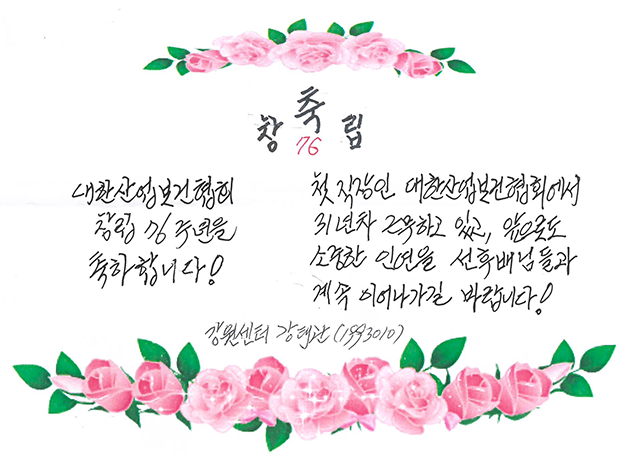 축
창 76 립
대한산업보건협회
창립 76 주년을
축하합니다!
첫 직장인 대한산업보건협회에서
31년차 근무하고 있고, 앞으로도
소중한 인연을 선후배님들과
계속 이어나가길 바랍니다!
강원센터 강태관 (1993010)